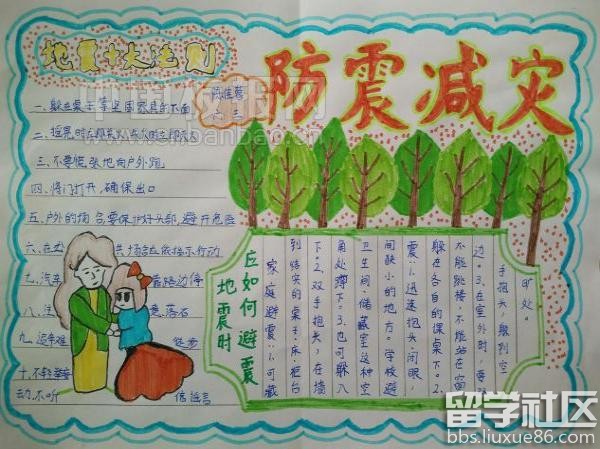 地震十大法则
防震减灾
一、躲在桌子等坚固家具的下面
二、摇晃时立即关火,失火时立即灭火
三、不要慌张地向户外跑
四、将门打开,确保出口
五、户外的场合,要保护好头部,避开危险
六、在 共场合应依指示行动
七、汽车 靠路边停
八、注 意落石
九、避难 徒步
十、不轻举
动,不听 信谣言
地震时
应如何避震
家庭避震:1.可藏
到结实的桌子、床柜台
下。2.双手抱头,在墙
角处蹲下。3.也可躲入
卫生间、储藏室这种空
间狭小的地方。学校避
震:1.迅速抱头、闭眼,
躲在各自的课桌下。2.
不能跳楼,不能站在窗
边。3.在室外时,要
手抱头,躲到空
旷处。
中国板报网
留学社区
bbs.liuxue86.com